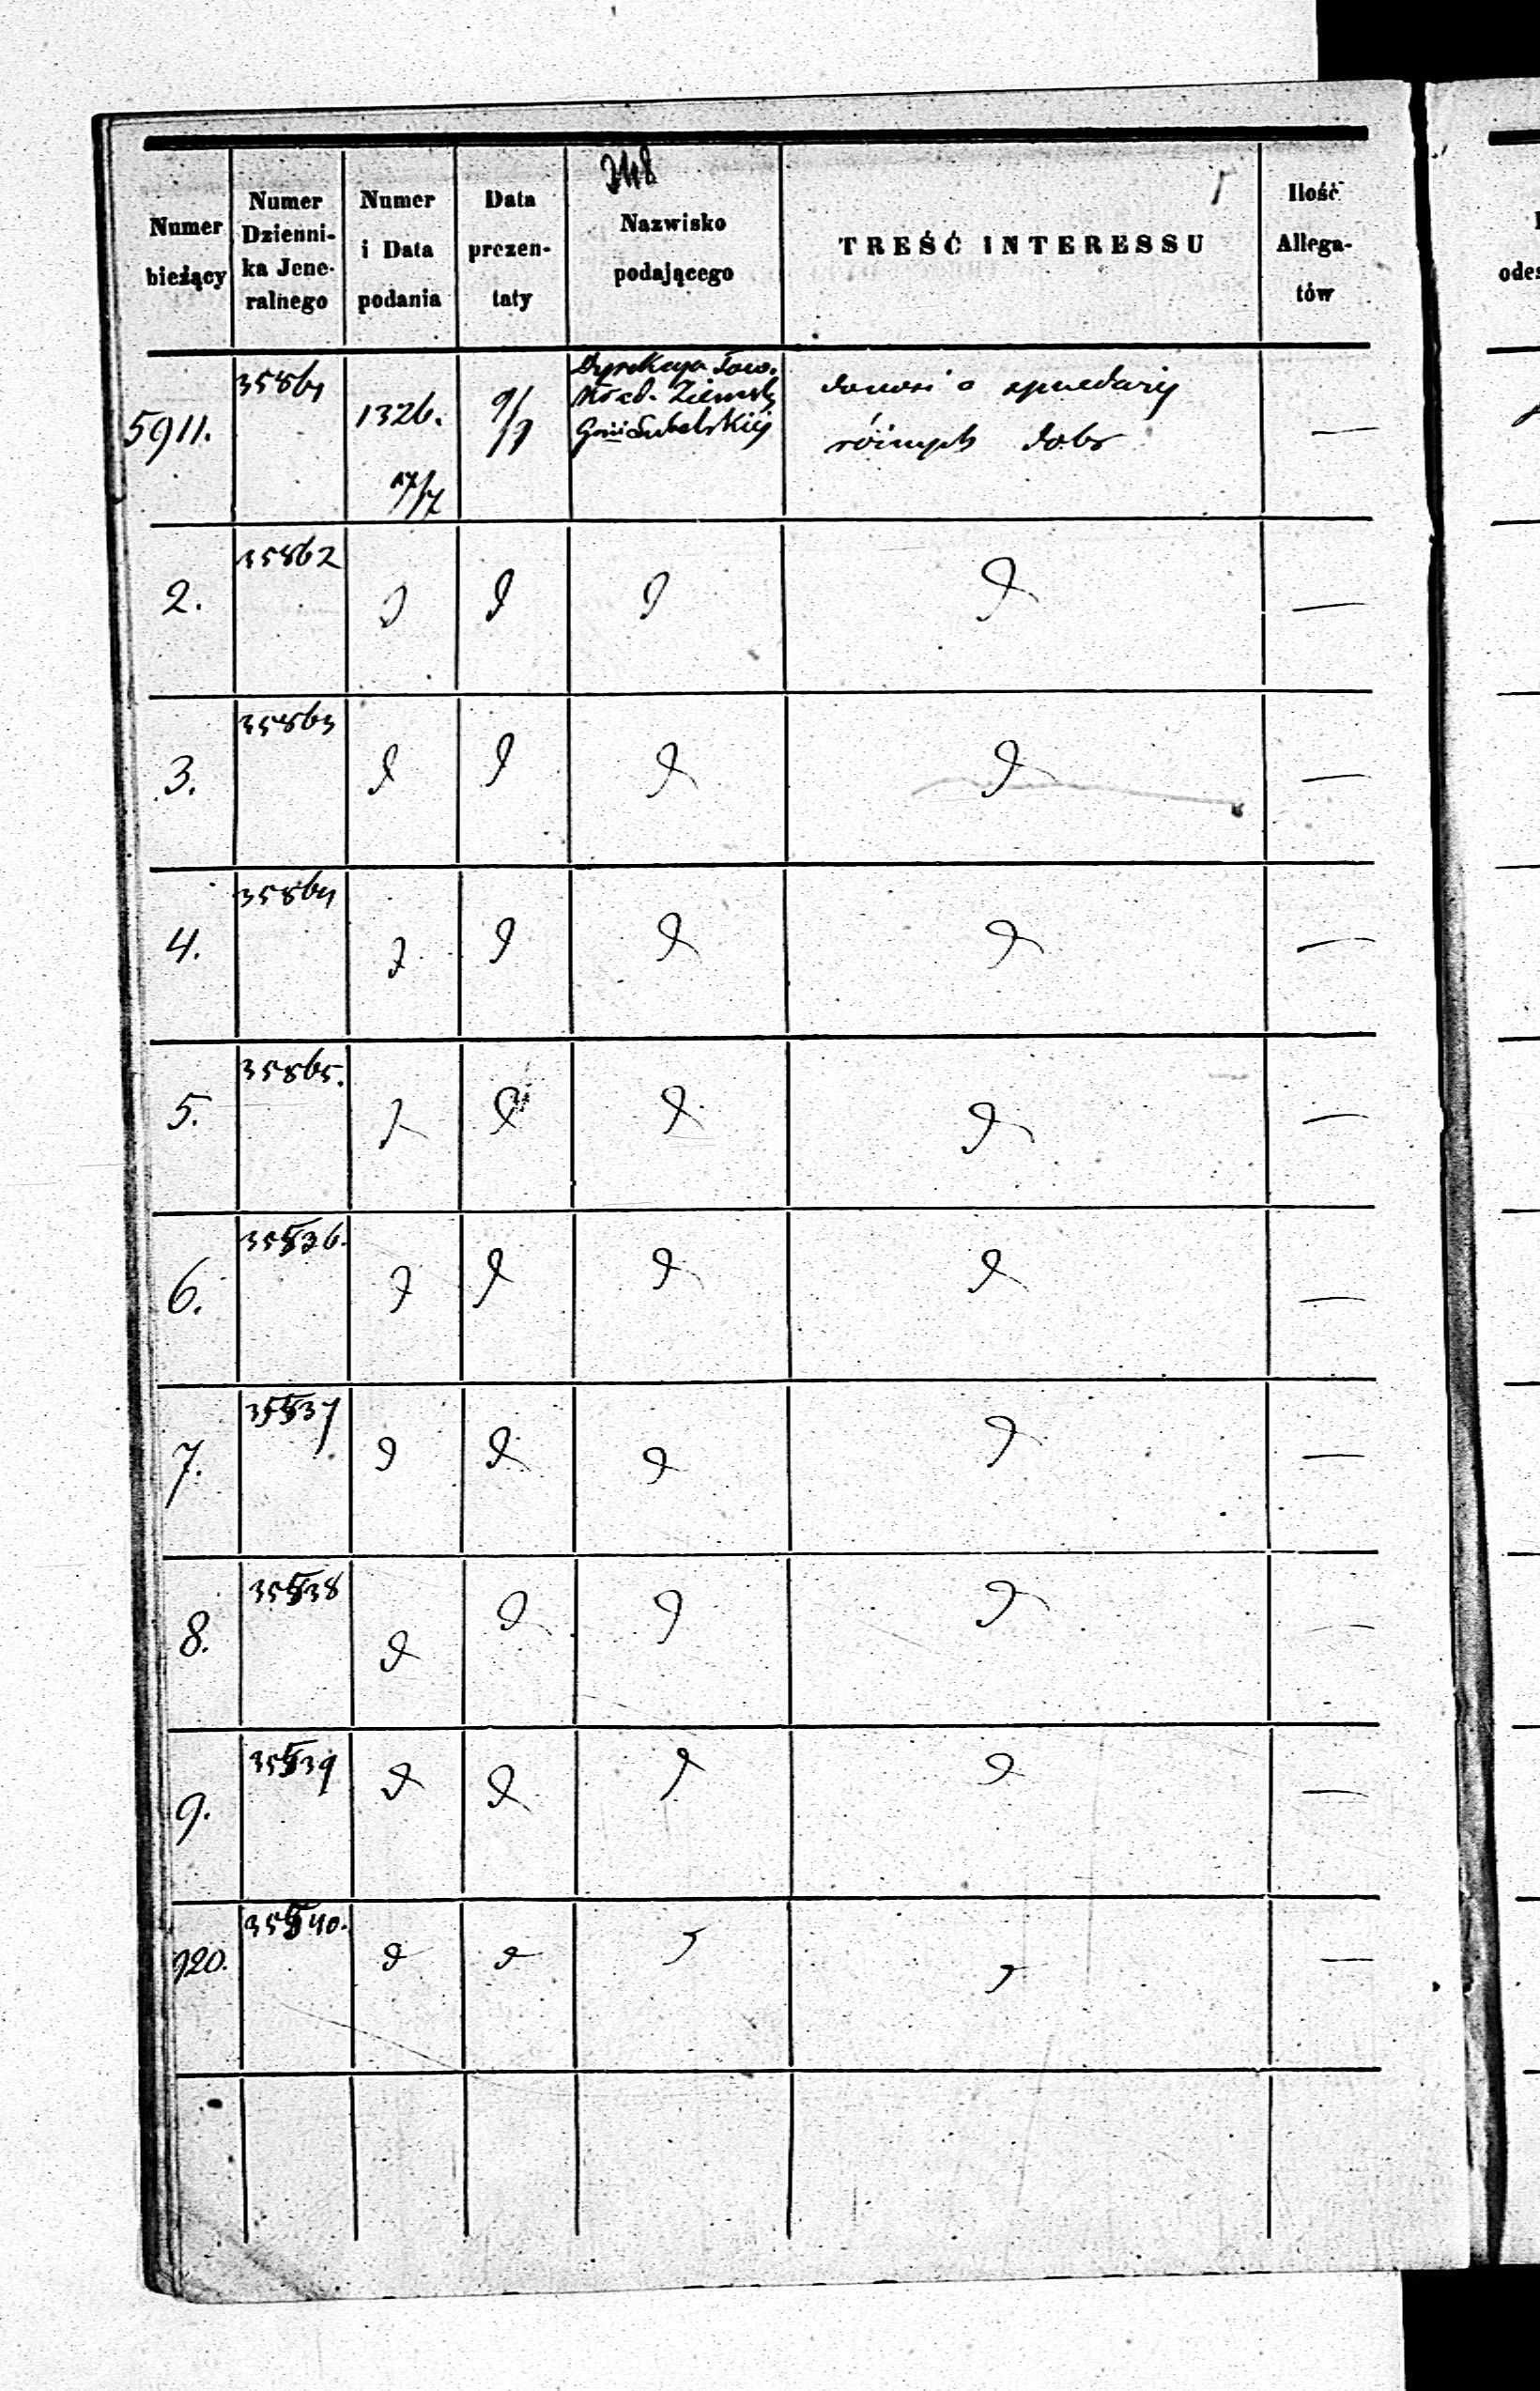 248
Numer bieżący
Numer Dzienni- ka Jene- ralnego
Numer i Data podania
Data prezen- taty
Nazwisko podającego
TREŚĆ INTERESSU
Ilość Allega- tów
5911.
35861
1326.
17/7
9/9
Dyrekcya Tow.
Kred. Ziemsk
Gnii Lubelskiej
donosi o sprzedaży
różnych dóbr
—
2.
35862
—
3.
35863
—
4.
35864
—
5.
35865.
—
6.
35536.
—
7.
35537
—
8.
35538
—
9.
35539
—
920.
35540.
—
odes